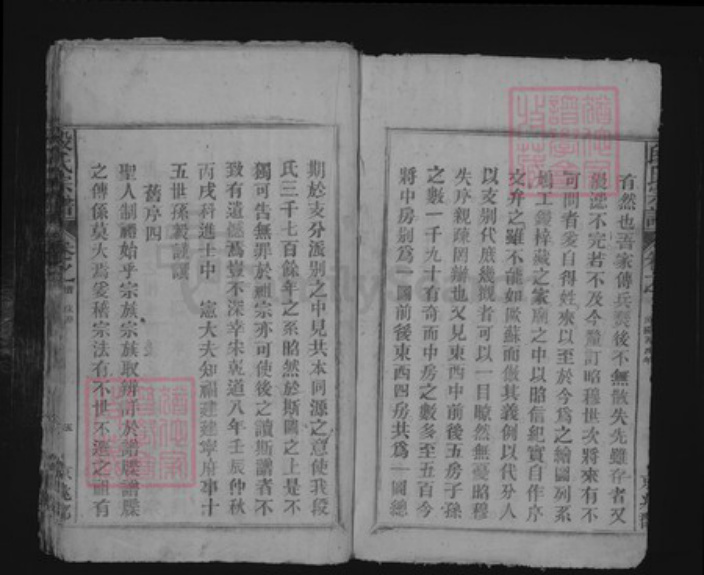 有然也吾家傳兵燹後不無散失先雖存者又
漫滤不完若不及今釐訂昭穆世次將來有不
可問者爰自得姓來以至於今爲之繪圖列系
鳩工鋟梓藏之家廟之中以昭信紀實自作序
文弁之雖不能如歐蘇而倣其義例以代分人
以支别代庶幾觀者可以一目瞭然無憂昭穆
失序親疎罔辯也又見東西中前後五房子孫
之數一千九十有奇而中房之數多至五百今
將中房别爲一圖前後東西四房共爲一圖總
期於支分派别之中見共本同源之意使我段
氏三千七百餘年之系昭然於斯圖之上是不
獨可告無罪於祖宗亦可使後之讀斯譜者不
致有遺憾焉豈不深幸宋乾道八年壬辰仲秋
丙戌科進士中 憲大夫知福建建寧府事十
五世孫毅謹譔
舊序四
聖人制禮始乎宗族宗族取辨詳於譜牒譜牒
之傳係莫大焉爰稽宗法有不世不遷之
段氏宗譜 卷之
五 京兆郡